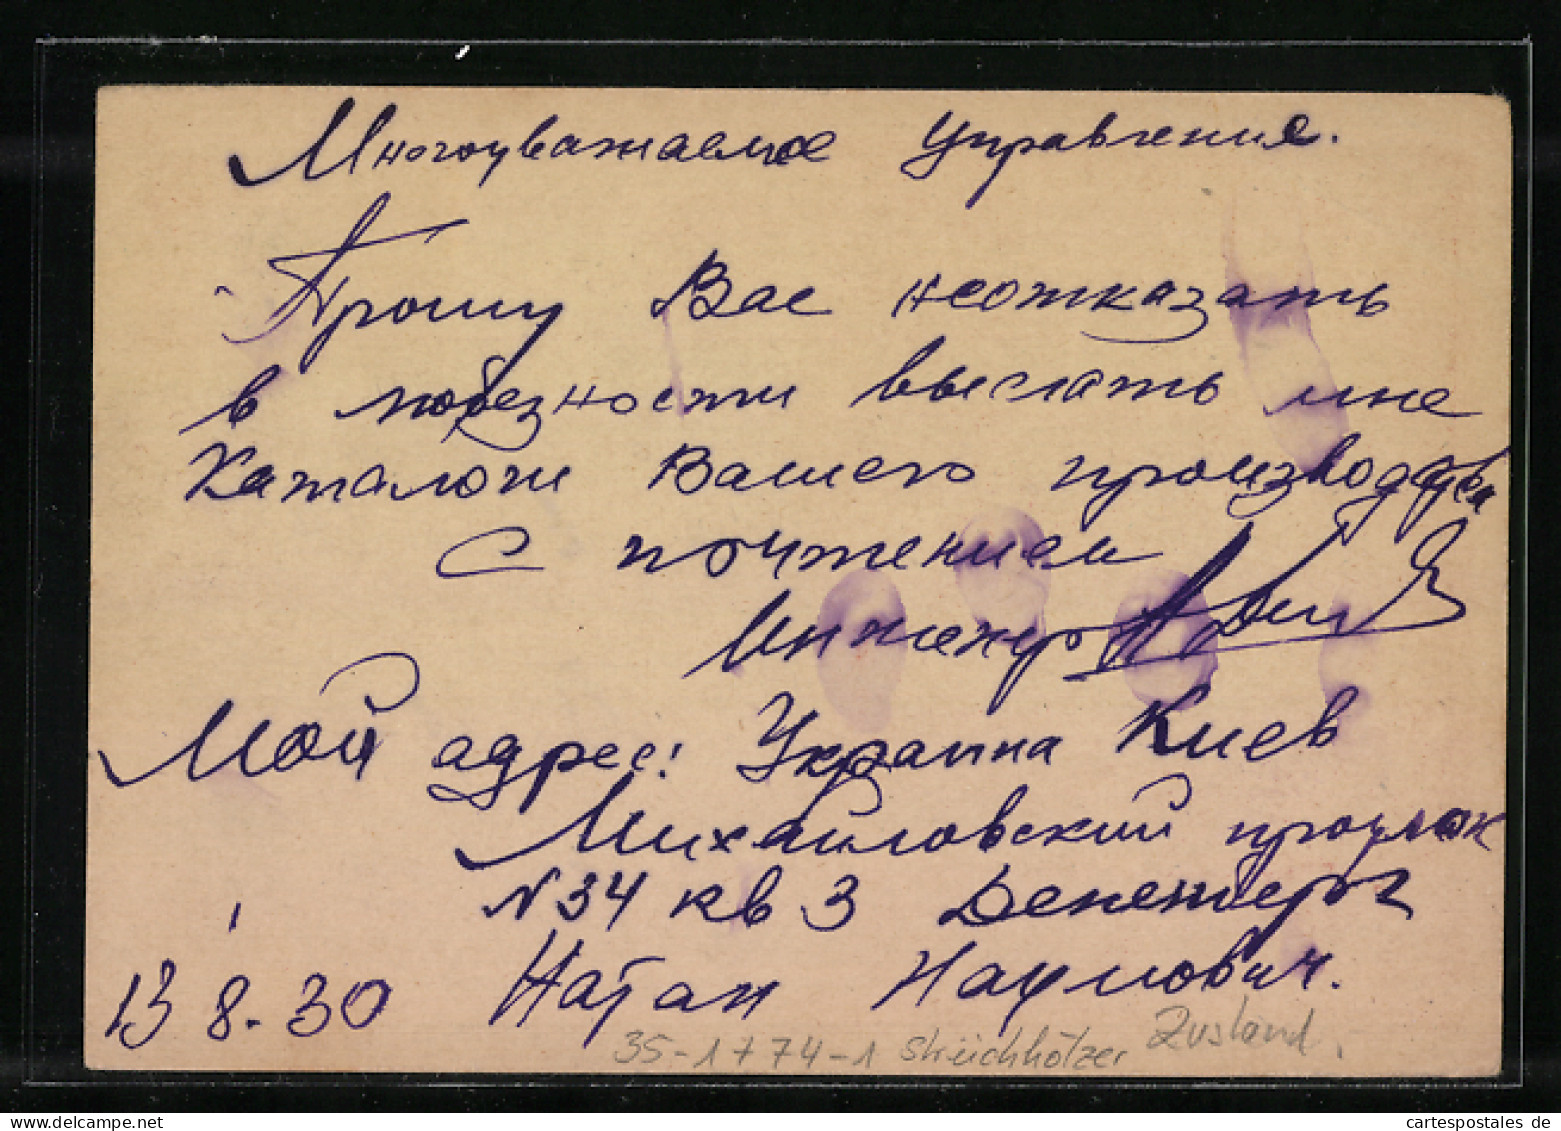 Многоуважаемое Управление.
Прошу Вас неотказать
в любезности выслать мне
Каталоги Вашего производства
С почтением
Инженер
Мой адрес: Украина Киев
Михайловский проулок
N 34 кв 3
Натан Наумович.
13 8. 30
35-1 + 74-1 Streichhölzer Zustand.
cartespostales de